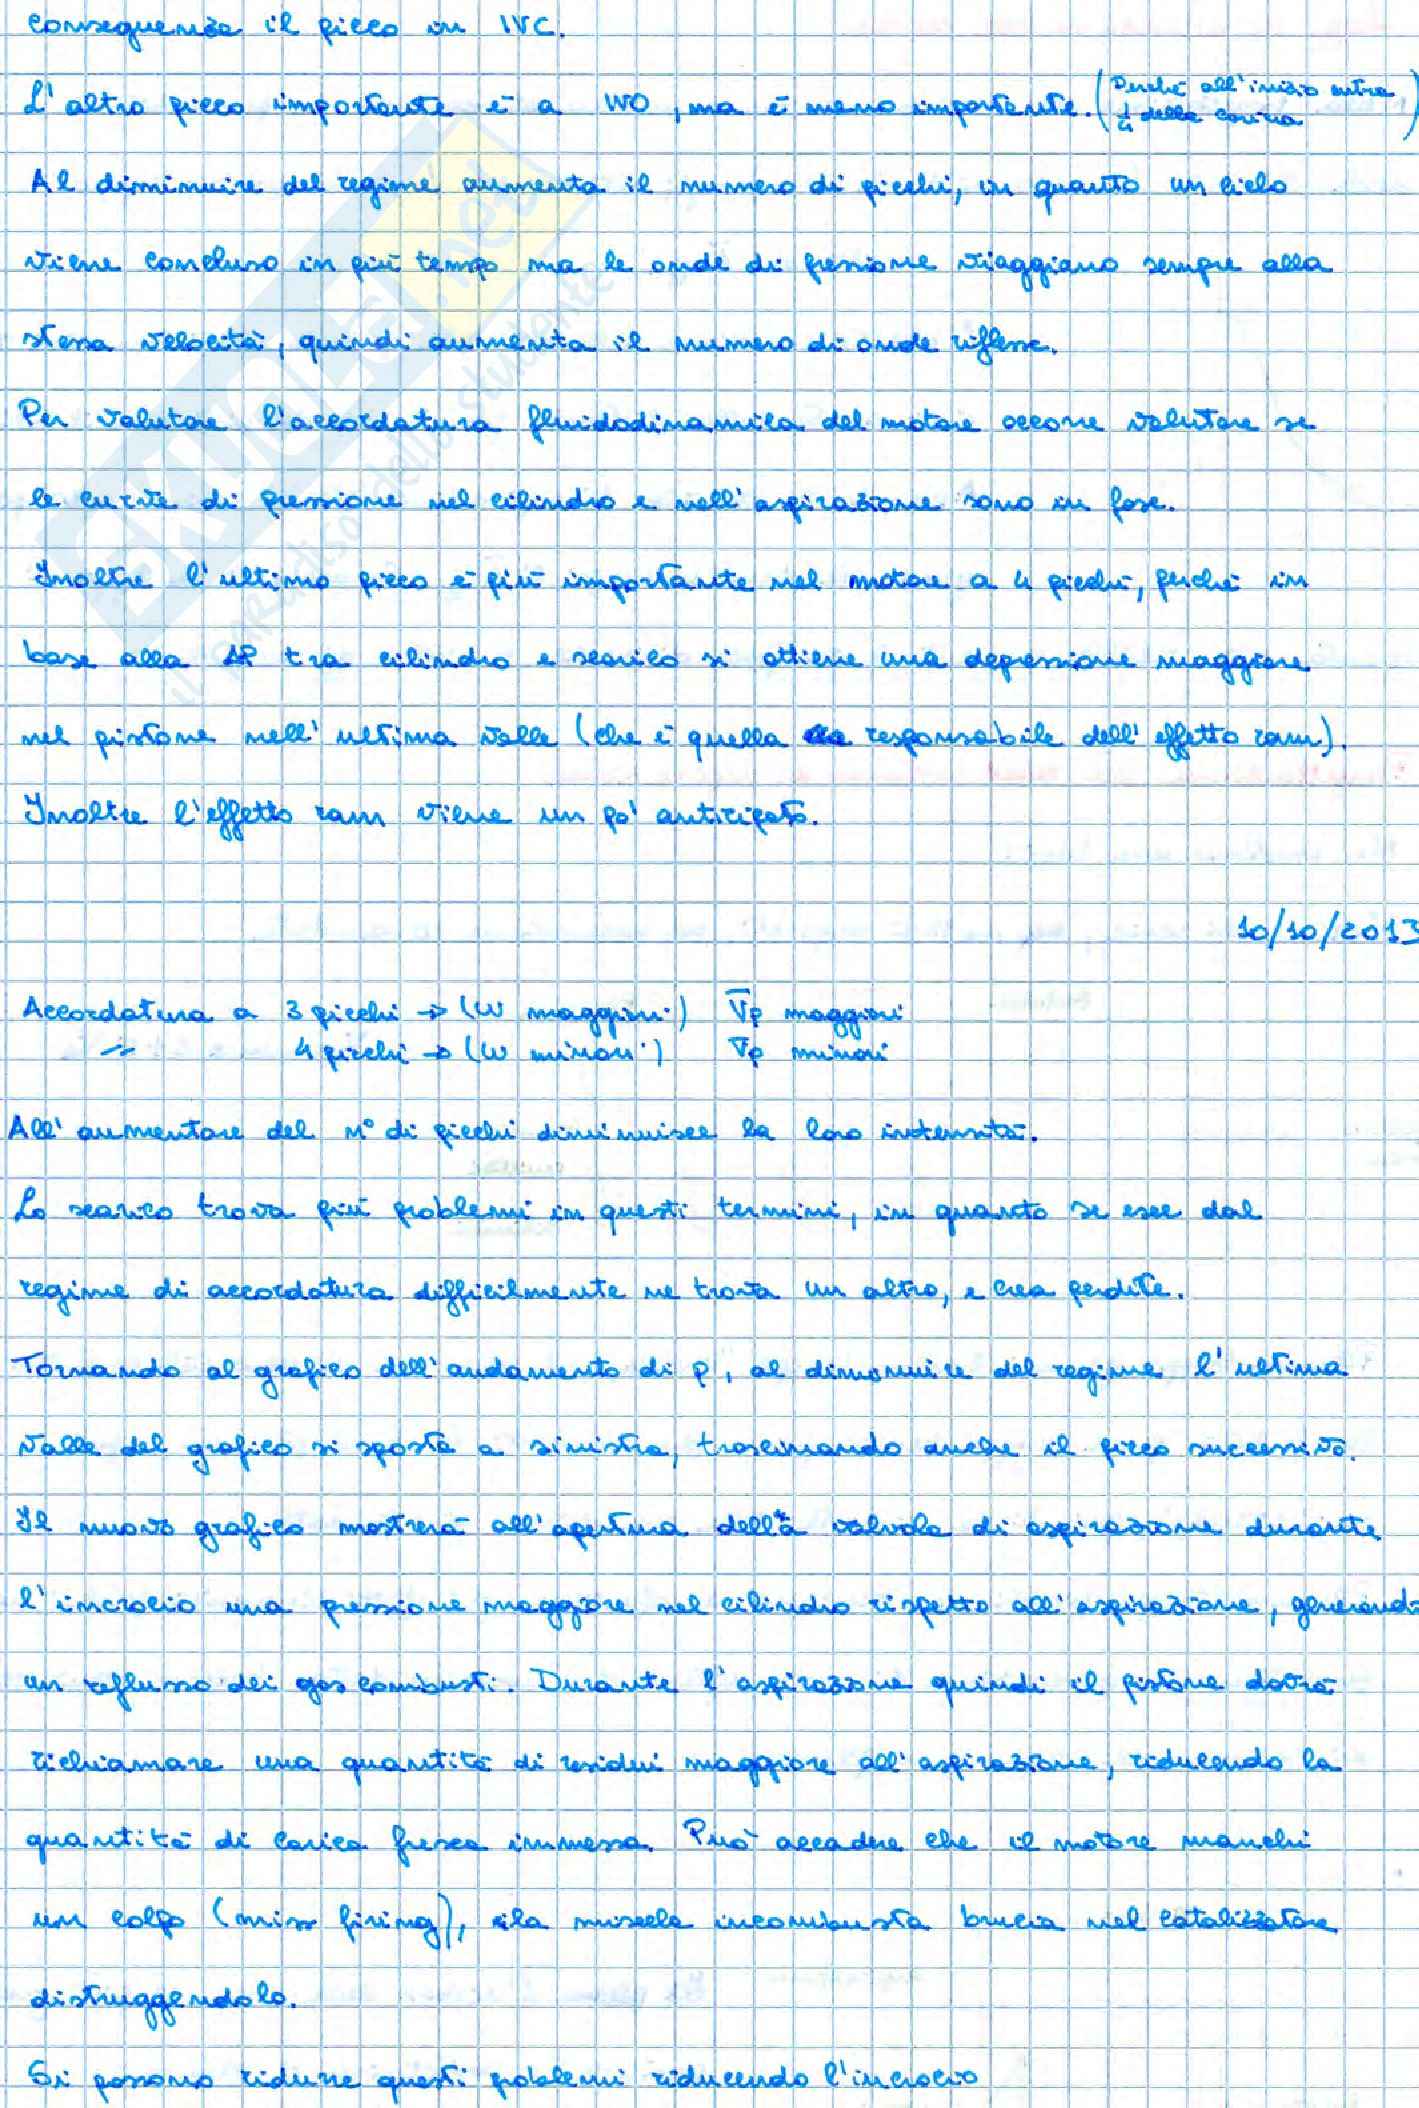 conseguenza il picco in IVC.
L'altro picco importante è a IVO, ma è meno importante. (Perché all'inizio entra
1/4 della carica)
Al diminuire del regime aumenta il numero di picchi, in quanto un ciclo
viene concluso in più tempo ma le onde di pressione viaggiano sempre alla
stessa velocità, quindi aumenta il numero di onde riflesse.
Per valutare l'accordatura fluidodinamica del motore occorre valutare se
le curve di pressione nel cilindro e nell'aspirazione sono in fase.
Inoltre l'ultimo picco è più importante nel motore a 4 picchi, perché in
base alla ΔP tra cilindro e scarico si ottiene una depressione maggiore
nel pistone nell'ultima valle (che è quella responsabile dell'effetto ram).
Inoltre l'effetto ram viene un po' anticipato.
10/10/2013
Accordatura a 3 picchi → (ω maggiori) V̄p maggiori
〃 4 picchi → (ω minori) V̄p minori
All'aumentare del n° di picchi diminuisce la loro intensità.
Lo scarico trova più problemi in questi termini, in quanto se esce dal
regime di accordatura difficilmente ne trova un altro, e crea perdite.
Tornando al grafico dell'andamento di p, al diminuire del regime l'ultima
valle del grafico si sposta a sinistra, trascinando anche il picco successivo.
Il nuovo grafico mostrerà all'apertura della valvola di aspirazione durante
l'incrocio una pressione maggiore nel cilindro rispetto all'aspirazione, generando
un reflusso dei gas combusti. Durante l'aspirazione quindi il pistone dovrà
richiamare una quantità di residui maggiore all'aspirazione, riducendo la
quantità di carica fresca immessa. Può accadere che il motore manchi
un colpo (miss firing), e la miscela incombusta brucia nel catalizzatore
distruggendolo.
Si possono ridurre questi problemi riducendo l'incrocio
SKUOLA.net
il paradiso dello studente